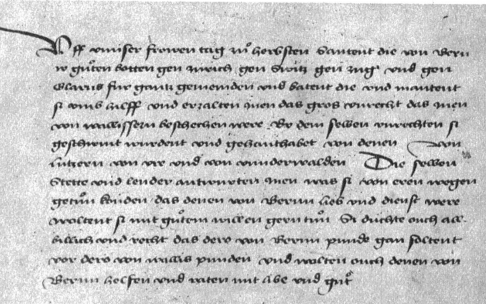 Uff unnser frowen tag zů herbsten Santent die von Bern
ir gůten botten gen zurich gen Switz gen zug und gen
Glarus fur gantz gemeinden und batent die und mantent
si umb hilff und erzalten inen das gros unrecht das inen
von wallissern beschechen were Bi dem selben unrechten si
geschirmt wurdent und gehanthabet von denen von
lutzern von ure und von underwalden Die selben
Stette und lender antwurten inen was si von eren wegen
getůn konden das denen von Bernn lieb und dienst were
woltent si mit gůtem willen gern tůn Si duchte ouch alle
billich und recht das dero von Bernn punde gan soltent
vor dero von wallis punden und wolten ouch denen von
Bernn helfen und raten mit libe und gůt